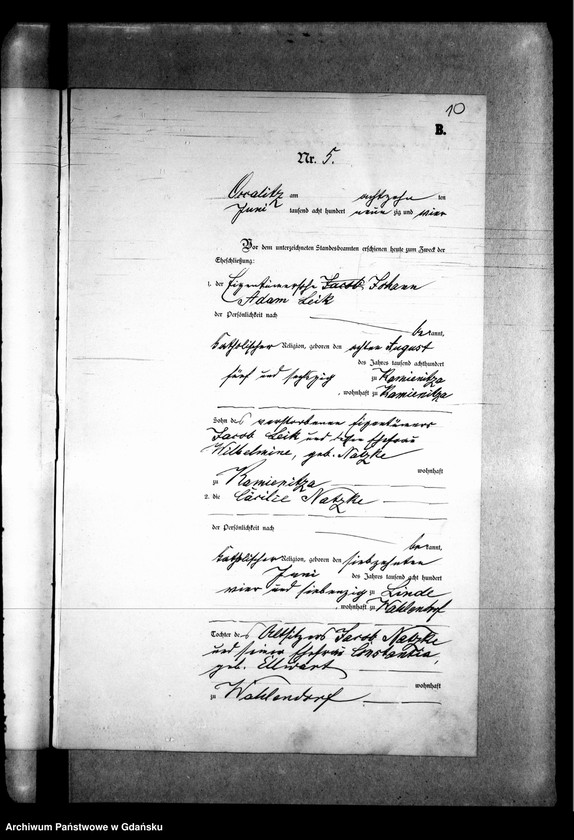 10
B.
Nr. 5.
am achtzehn ten
Juni tausend acht hundert neun zig und vier
Vor dem unterzeichneten Standesbeamten erschienen heute zum Zweck der
Eheschließung:
1. der Eigentümersohn Jacob Johann
Adam Leik
der Persönlichkeit nach
be kannt,
katholischer Religion, geboren den achten August
des Jahres tausend achthundert
fünf und sechzig zu Kamienitza
, wohnhaft zu Kamienitza
Sohn des verstorbenen Eigentümers
Jacob Leik und dessen Ehefrau
Wilhelmine, geb. Natzke
wohnhaft
zu Kamienitza
2. die Cäcilie Natzke
der Persönlichkeit nach
be kannt,
katholischer Religion, geboren den siebzehnten
Juni des Jahres tausend acht hundert
vier und siebenzig zu Linde
, wohnhaft zu Wahlendorf
Tochter des Altsitzers Jacob Natzke
und seiner Ehefrau Constantia,
geb. Ellwart
wohnhaft
zu Wahlendorf
Archiwum Państwowe w Gdańsku